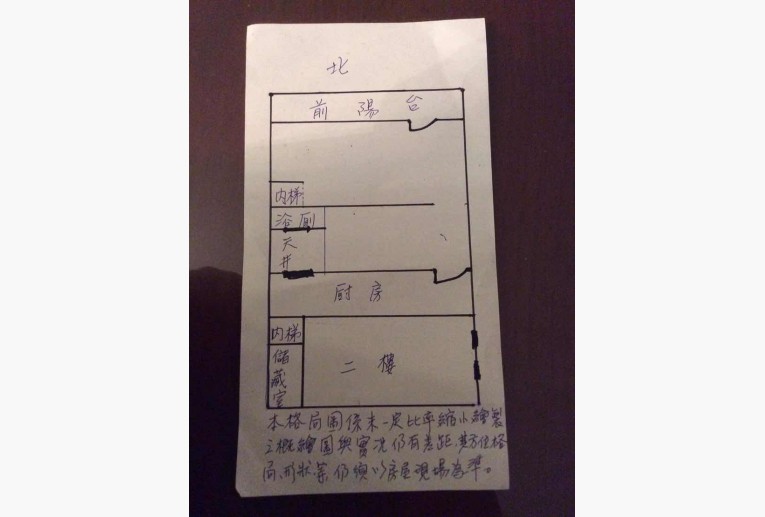 北
前陽台
内梯
浴厠
天井
厨房
内梯
儲藏室
二樓
本格局圖係未一定比率縮小繪製
之概繪圖與實況仍有差距,其方位格
局、形狀等仍須以房屋現場為準。